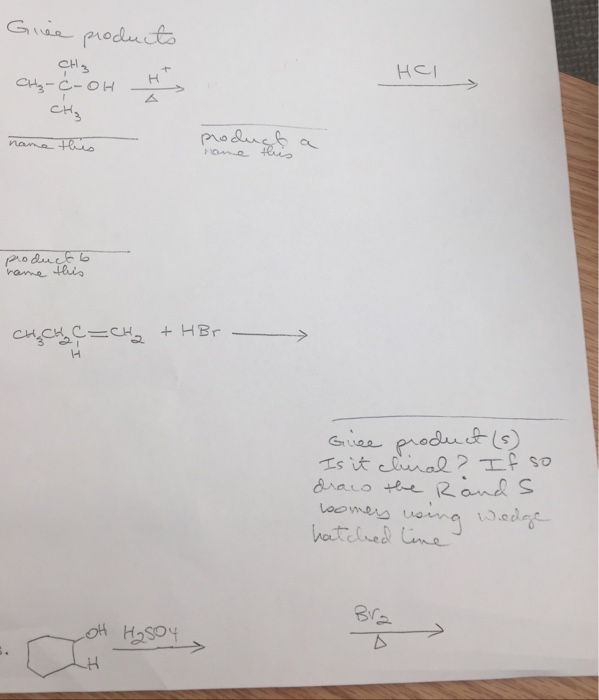 Give products
CH3
CH3-C-OH H+ HCl
CH3 Δ
name this product a
name this
product b
name this
CH3CH2C=CH2 + HBr
H
Give product(s)
Is it chiral? If so
draw the R and S
isomers using wedge
hatched line
Br2
OH H2SO4 Δ
H